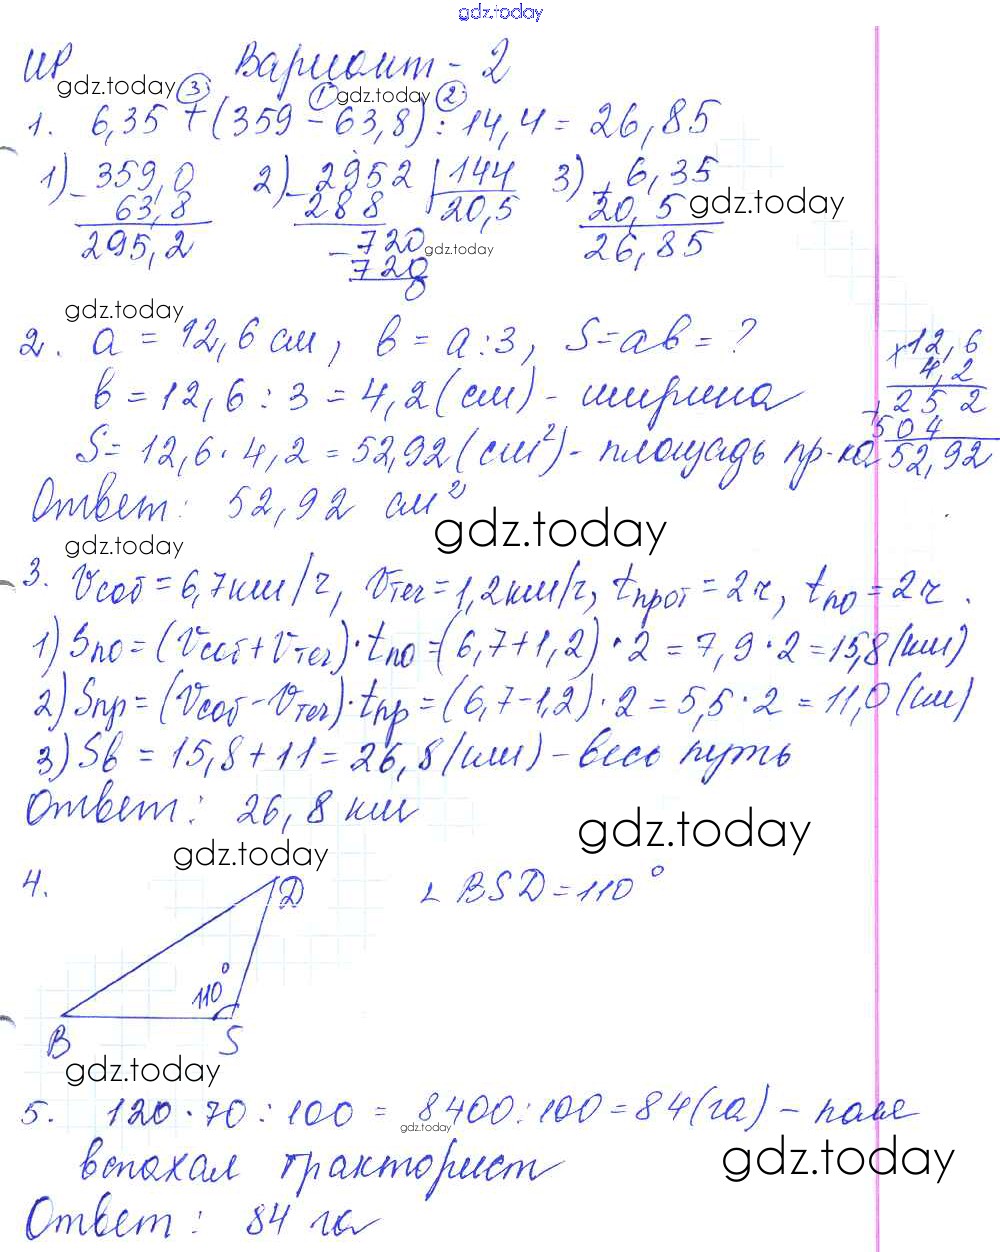 gdz.today
ИР Вариант - 2
gdz.today ③ ① gdz.today ②
1. 6,35 + (359 - 63,8) : 14,4 = 26,85
1) - 359,0 2) - 2952 | 144 3) + 6,35
63,8 288 20,5 20,5 gdz.today
295,2 - 720 gdz.today 26,85
720
0
gdz.today
2. a = 12,6 см, b = a : 3, S = ab = ?
b = 12,6 : 3 = 4,2 (см) - ширина
S = 12,6 · 4,2 = 52,92 (см²) - площадь пр-ка
× 12,6
4,2
+ 252
504
52,92
Ответ: 52,92 см²
gdz.today
gdz.today
3. Vсоб = 6,7 км/ч, Vтеч = 1,2 км/ч, tпрот = 2ч, tпо = 2ч.
1) Sпо = (Vсоб + Vтеч) · tпо = (6,7 + 1,2) · 2 = 7,9 · 2 = 15,8 (км)
2) Sпр = (Vсоб - Vтеч) · tпр = (6,7 - 1,2) · 2 = 5,5 · 2 = 11,0 (км)
3) Sв = 15,8 + 11 = 26,8 (км) - весь путь
Ответ: 26,8 км
gdz.today
gdz.today
4. D ∠ BSD = 110°
110°
B S
gdz.today
5. 120 · 70 : 100 = 8400 : 100 = 84 (га) - поля
gdz.today
вспахал тракторист
gdz.today
Ответ: 84 га